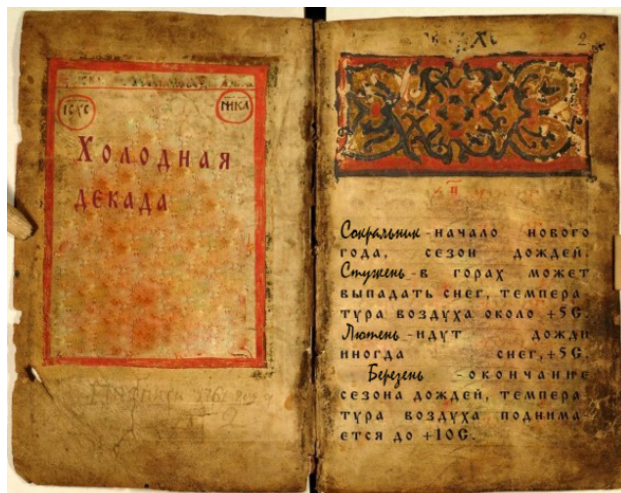 ІС ХС
НИКА
Холодная
декада
2
Сокральник - начало нового
года, сезон дождей.
Стужень - в горах может
выпадать снег, темпера
тура воздуха около +5 С.
Лютень - идут дожди
иногда снег, +5 С.
Березень - окончание
сезона дождей, темпера
тура воздуха поднима
ется до +10 С.